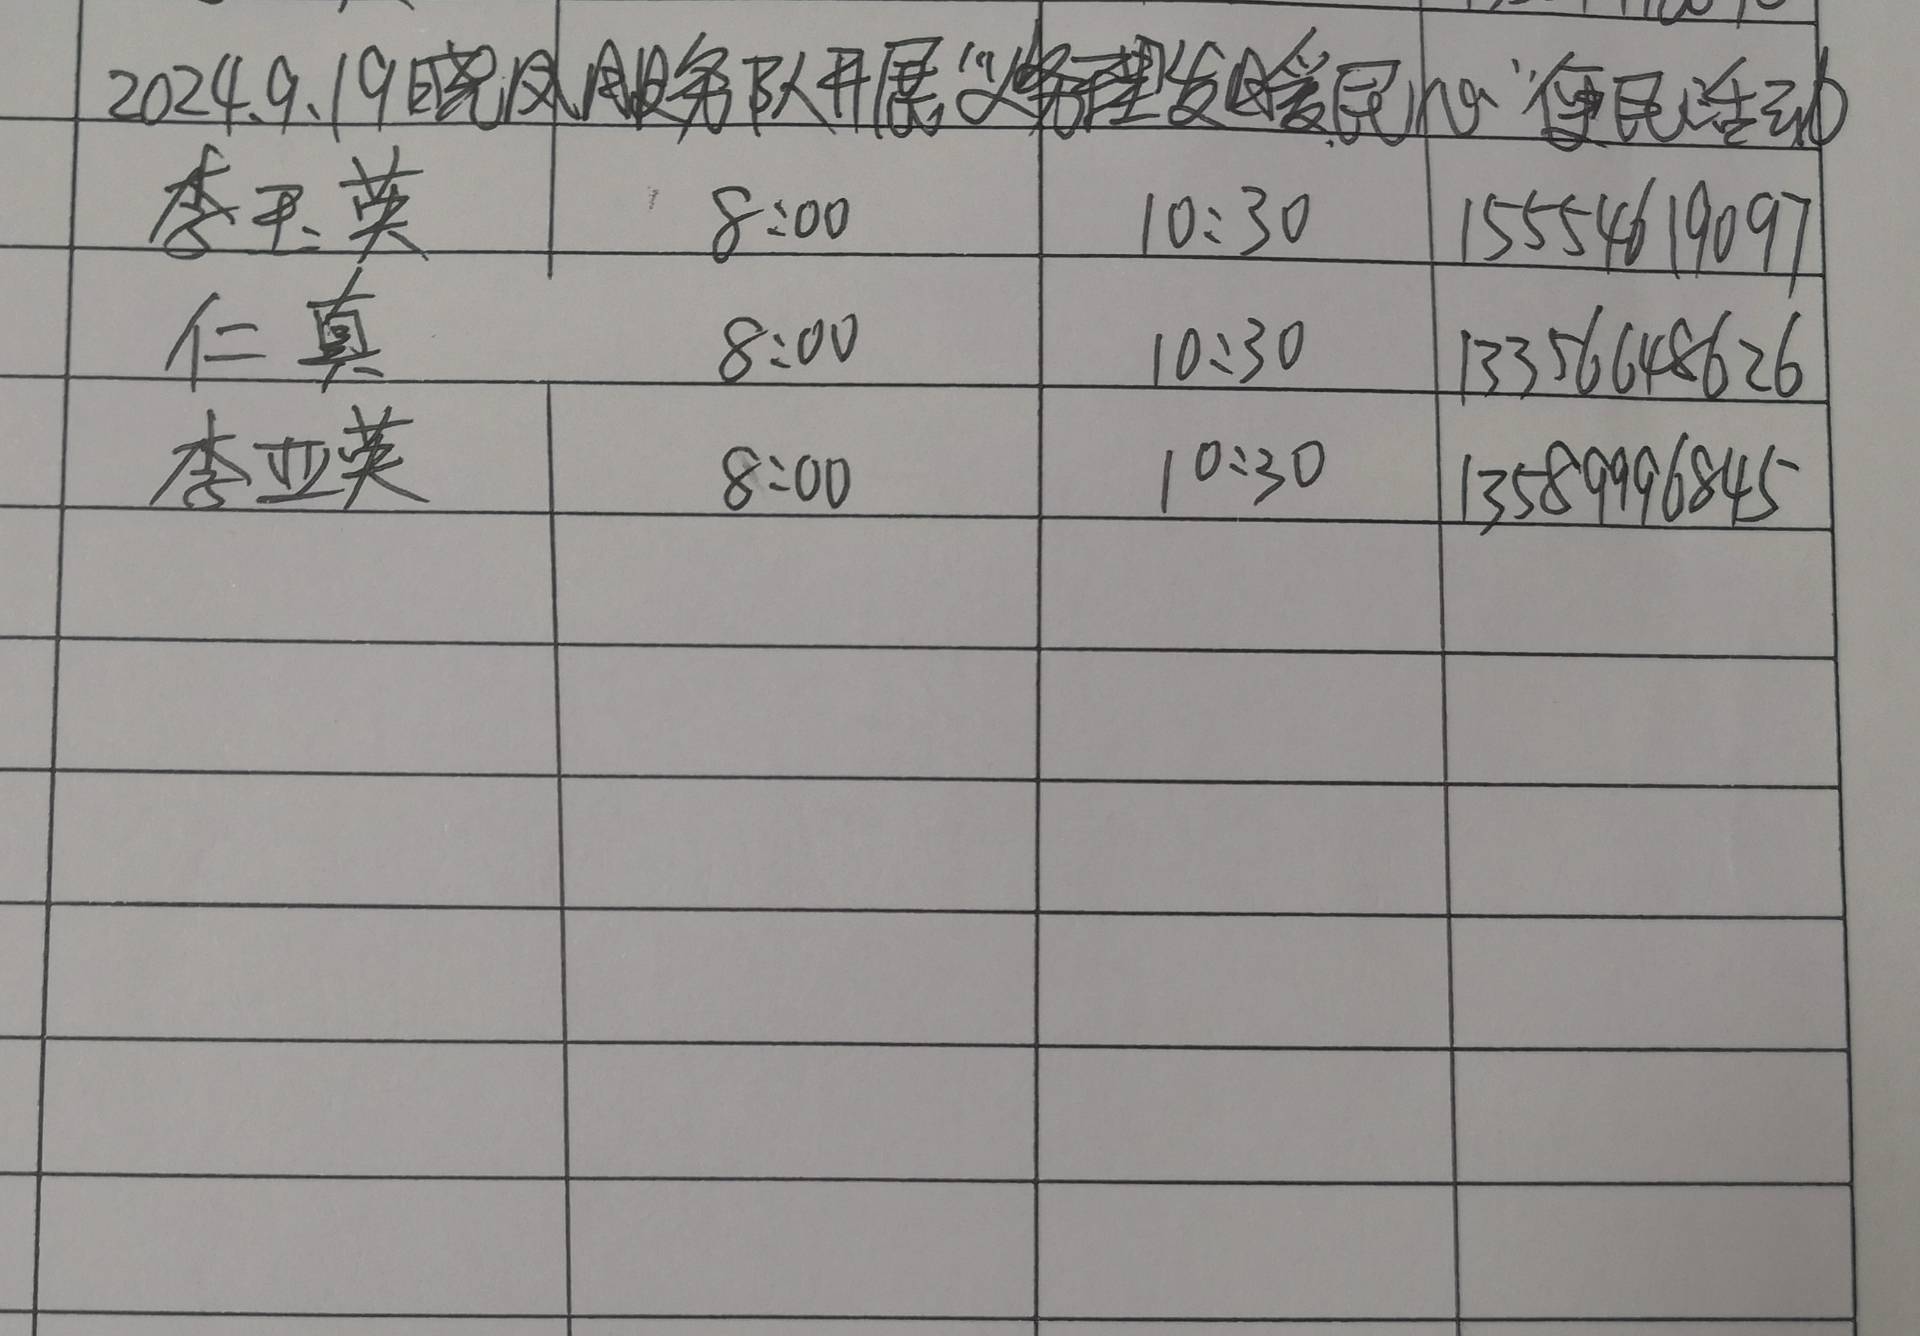 2024.9.19晓风服务队开展“义务理发暖民心”便民活动
李玉英 8:00 10:30 15554619097
仁真 8:00 10:30 13356648626
李亚英 8:00 10:30 13589996845